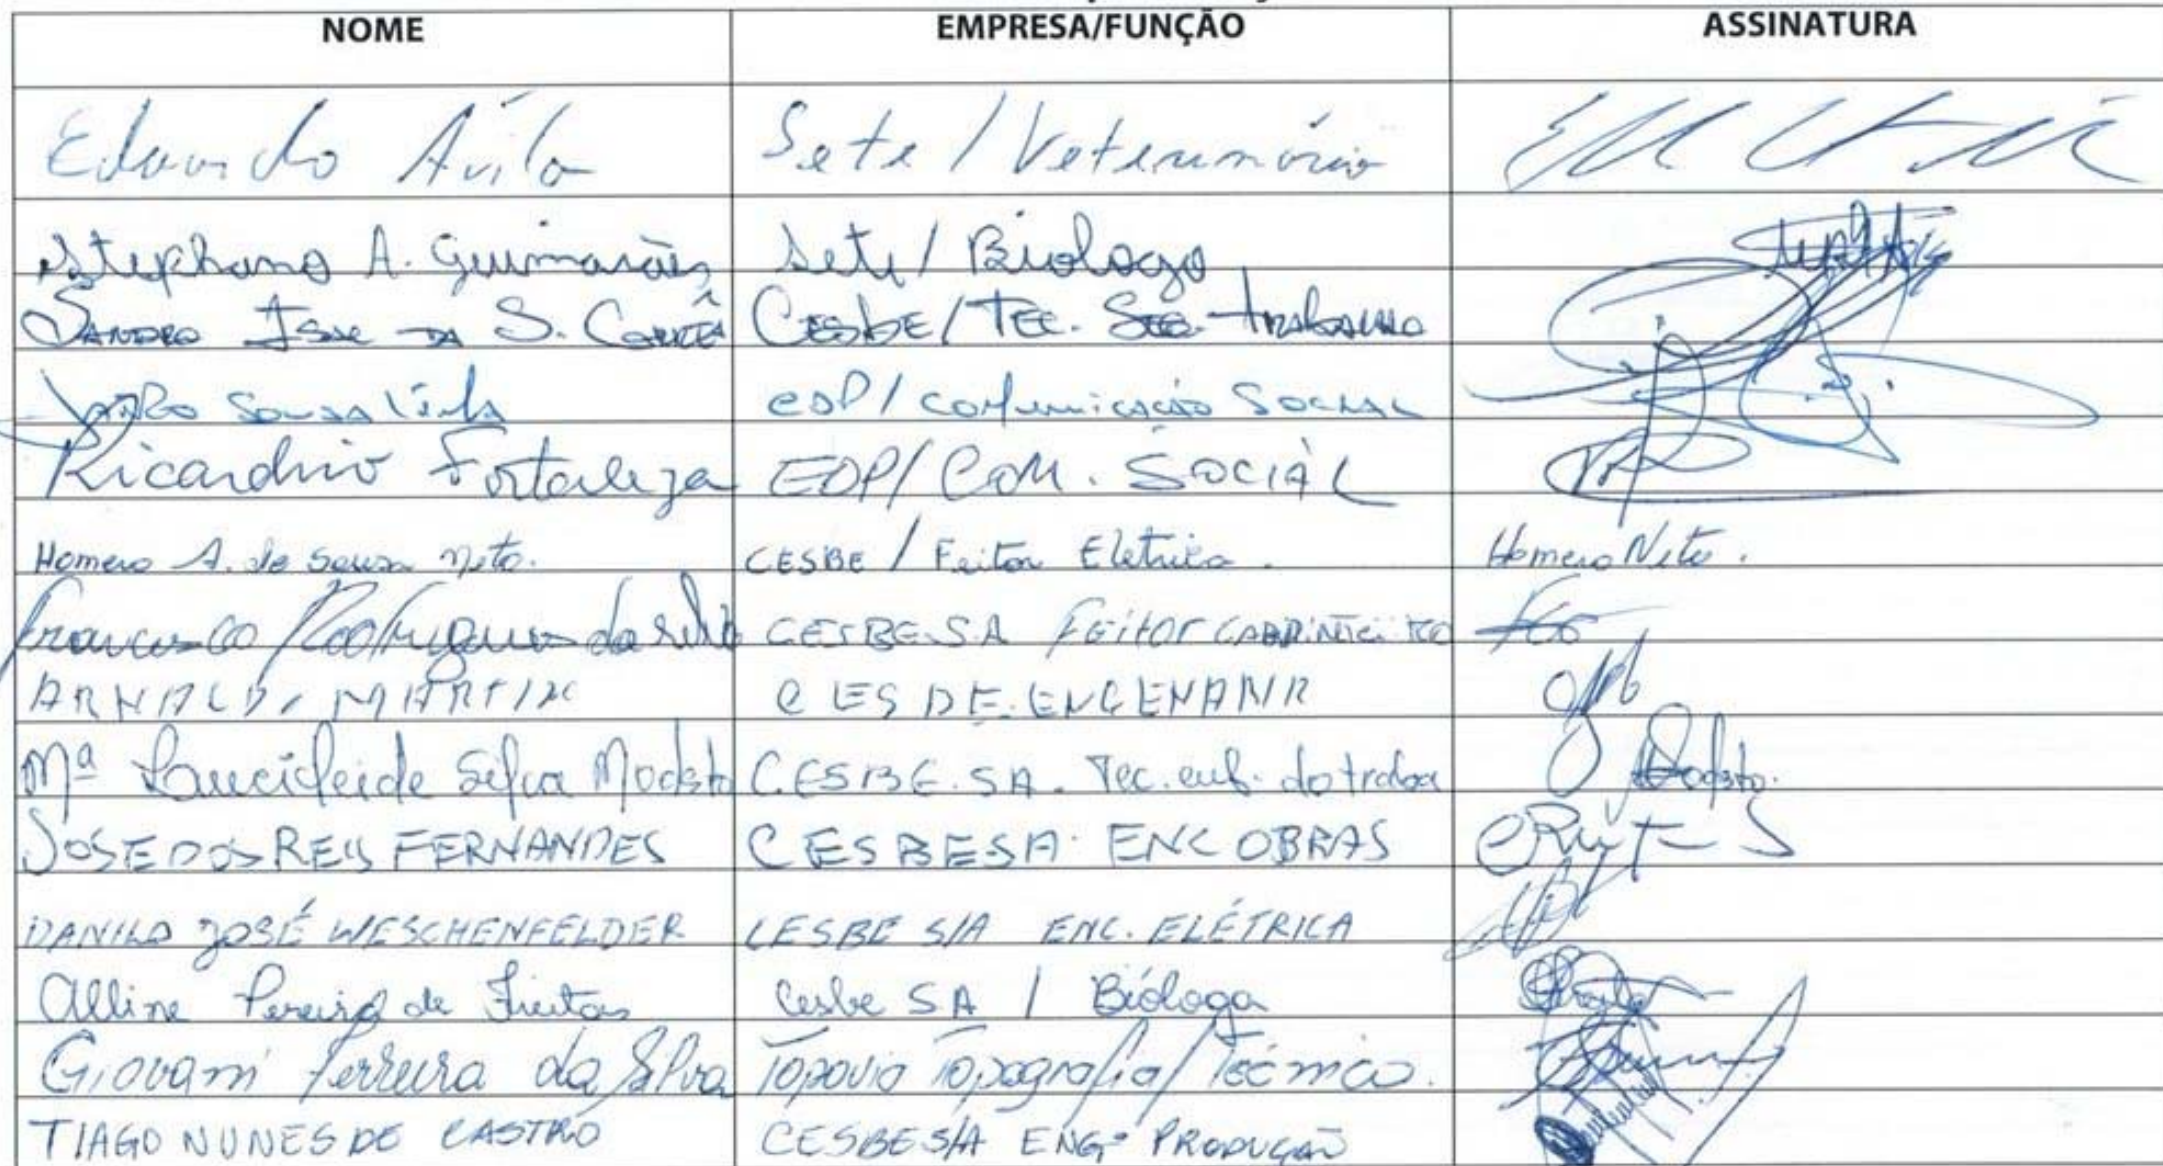 NOME EMPRESA/FUNÇÃO ASSINATURA
Eduardo Ávila Sete / Veterinário
Stephano A. Guimarães Sete / Biologo
Sandro Isac da S. Corrêa Cesbe / Tec. Seg. Trabalho
Sousa EDP / Comunicação Social
Ricardino Fortaleza EDP / COM. SOCIAL
Homero A. de Souza Neto. CESBE / Feitor Eletrica. Homero Neto.
Francisco Rodrigues da Silva CESBE.S.A FEitor CARPINTEIRO
ARNALDI MARTIN CESBE.ENGENHARIA
Mª Laucicleide Silva Modesto CESBE.SA. Tec. enf. do traba Modesto.
JOSE DOS REIS FERNANDES CESBESA. ENC OBRAS
DANILO JOSÉ WESCHENFELDER CESBE S/A ENC. ELÉTRICA
Alline Pereira de Freitas Cesbe SA / Bióloga
Giovani Ferreira da Silva Topovia Topografia / Técnico.
TIAGO NUNES DE CASTRO CESBE S/A ENGº PRODUÇÃO